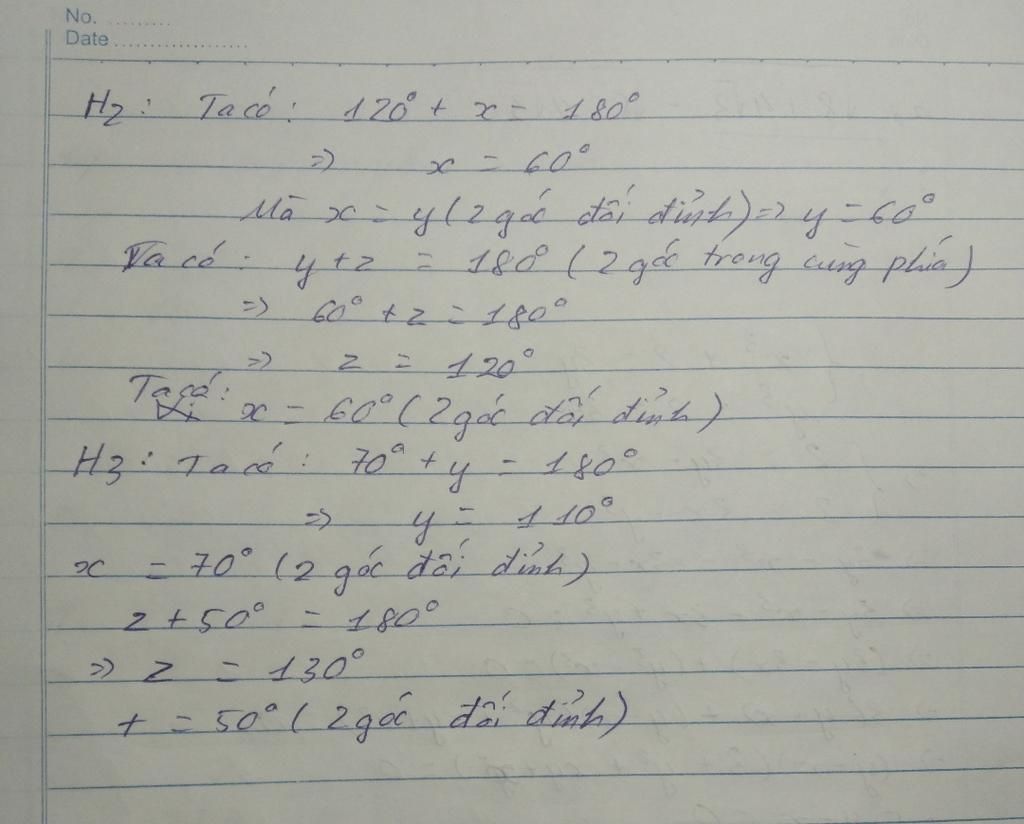 No. .........
Date ...................
H2 : Ta có : 120° + x = 180°
=> x = 60°
Mà x = y (2 góc đối đỉnh) => y = 60°
Ta có : y + z = 180° (2 góc trong cùng phía)
=> 60° + z = 180°
=> z = 120°
Ta có :
x = 60° (2 góc đối đỉnh)
H3 : Ta có : 70° + y = 180°
=> y = 110°
x = 70° (2 góc đối đỉnh)
z + 50° = 180°
=> z = 130°
t = 50° (2 góc đối đỉnh)